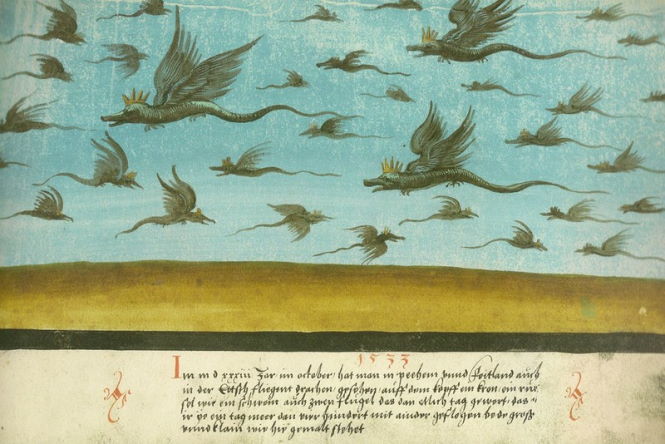 1533
Im m d xxxiii Jar im october hat man in pechem vnnd Foittland auch
in der Etsch fliegent drachen gesehen auff dem kopff ein kron ein rüs
sel wie ein schwein auch zwen flügel das hat etlich tag gewert das
ir ye ein tag meer dan vier hundert mit ainder geflogen bede groß
vnnd klain wie hie gemalt stehet